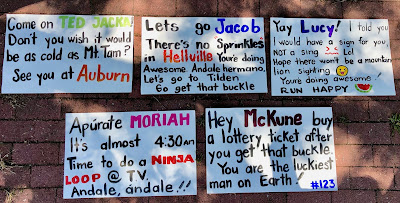 Come on TED JACKA!
Don't you wish it would
be as cold as Mt. Tam?
See you at Auburn
Lets go Jacob
There's no Sprinkles
in Hellville You're doing
Awesome Andale hermano,
Let's go to Tilden
Go get that buckle
Yay Lucy! I told you
I would have a sign for you,
NOT a sing Lol
Hope there won't be a mountain
lion sighting
You're doing awesome!
RUN HAPPY
Apúrate MORIAH
It's almost 4:30am
Time to do a NINJA
LOOP @ T.V.
Andale, ándale!!
Hey McKune buy
a lottery ticket after
you get that buckle.
You are the luckiest
man on Earth!
#123